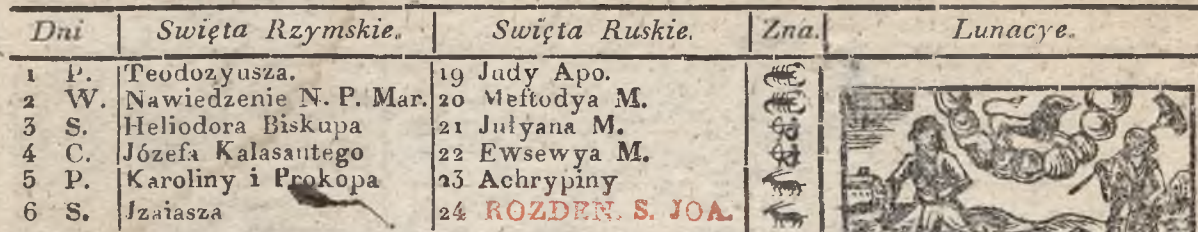 Dni Swięta Rzymskie. Swięta Ruskie. Zna. Lunacye.
1 P. Teodozyusza. 19 Judy Apo.
2 W. Nawiedzenie N. P. Mar. 20 Meftodya M.
3 S. Heliodora Biskupa 21 Julyana M.
4 C. Józefa Kalasantego 22 Ewsewya M.
5 P. Karoliny i Prokopa 23 Achrypiny
6 S. Jzaiasza 24 ROZDEN. S. JOA.